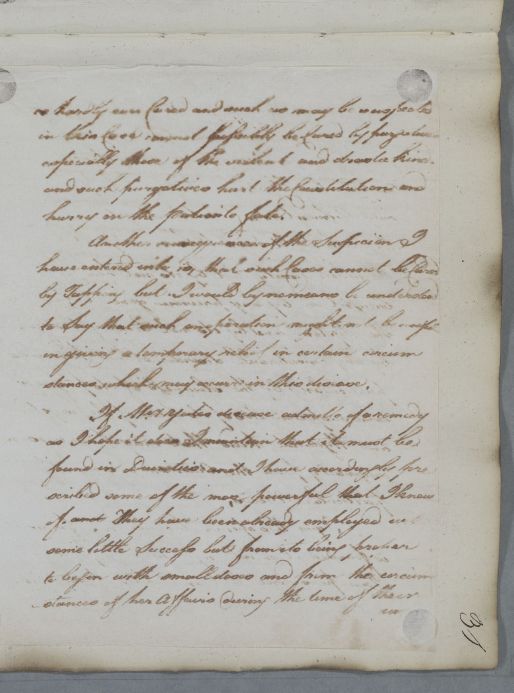 hardly ever Cured and such as may be suspected
in this Case cannot possibly be Cured by purgatives
especially those of the violent and drastic kind
and such purgatives hurt the Constitution and
hurry on the patients fate.
Another consequence of the Suspicion I
have entered into is, that such Cases cannot be Cured
by Tapping but I would by no means be understood
to Say that such an operation might not be useful
in giving a temporary relief in certain circum
stances which may occur in this disease.
If Mrs Yates disease admits of a remedy
as I hope it does I maintain that it must be
found in Diuretics and I have accordingly pre
scribed some of the most powerful that I know
of. They have been already employed
some little Success but from its being proper
to begin with small doses and from the circum
stances of her Affairs during the time of their
31